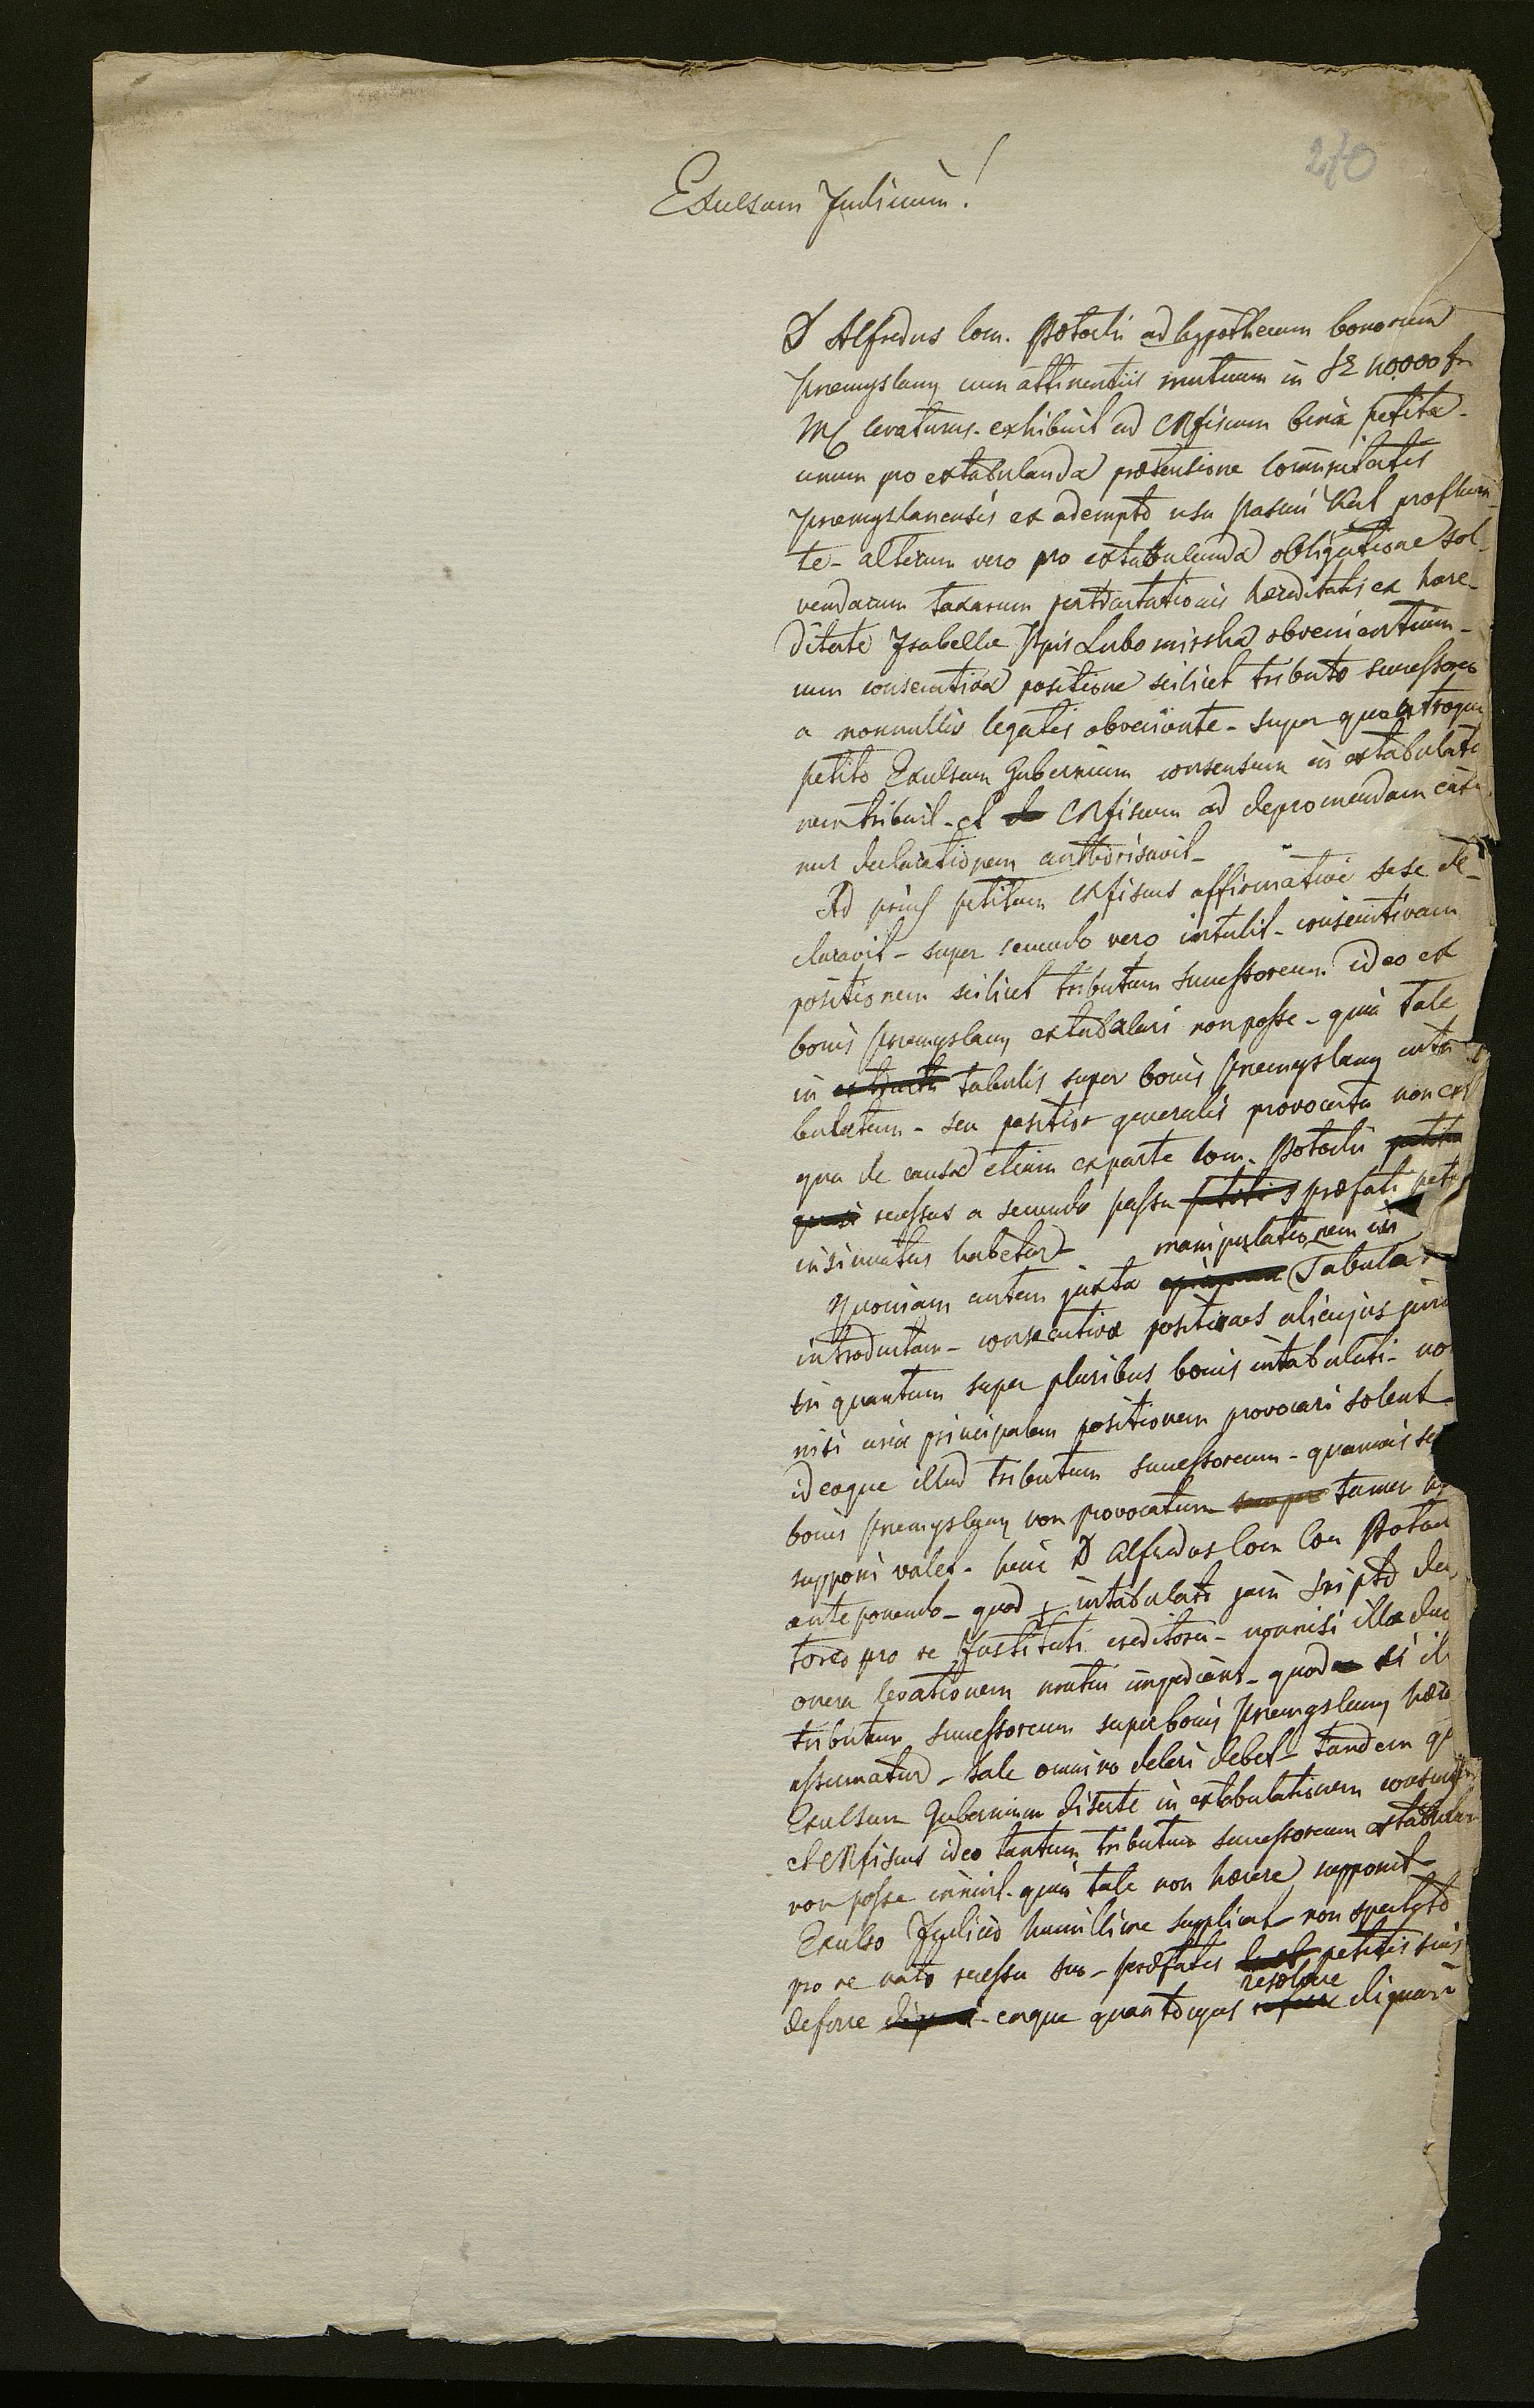 270
Exulsum Judicium!
D Alfredus Com. Potocki ad hypothecam bonorum
Przemyslany cum attinentiis mutuum in 40.000 fr
MC levaturus - exhibuit ad CRfiscum bina petita -
unum pro extabulanda prætensione Communitatis
Przemyslanensis ex adempto usu
te - alterum vero pro extabulanda obligatione sol-
vendarum taxarum pertractationis hæreditatis ex hære-
ditate Isabellæ Ppis Lubomirska obvenientium -
cum consecutiva positione scilicet tributo successoreo
a nonnullis legatis obveniente - super quo utroque
petito Exulsum Gubernium consensum in extabulatio
nem tribuit - et CRfiscum ad depromendam eate
nus declarationem authorisavit -
Ad prius petitum CRfiscus affirmative sese de-
claravit - super secundo vero intulit - consecutivam
positionem scilicet tributum successoreum ideo ex
bonis Przemyslany extabulari non posse - quia tale
in tabulis super bonis Przemyslany inta
bulatum - seu positio generalis provocata non est
qua de causa etiam ex parte Com. Potocki
recessus a secundo passu præfati peti
insinuatus habetur -
manipulationem in
Quoniam autem juxta Tabula
introductam - consecutivæ positiones alicujus juris
in quantum super pluribus bonis intabulati - no
nisi circa principalem positionem provocari solent -
ideoque illud tributum successoreum - quamvis su
bonis Przemyslany non provocatum tamen
supponi valet - hinc D Alfredus Com Com Potocki
anteponendo - quod intabulato jam scripto
toreo pro re Instituti creditorii - nonnisi illa duo
onera levationem mutui impediant - quod si il
tributum successoreum super bonis Przemyslany hære
assumatur - tale omnino deleri debet - tandem
Exulsum Gubernium diserte in extabulationem
et CRfiscus ideo tantum tributum successoreum extabulari
non posse innuit - quia tale non hærere supponit -
Exulso Judicio humillime supplicat - non spectato
pro re nata recessu suo - præfatis petitis suis
resolvere
deferre - eaque quantocyus dignari